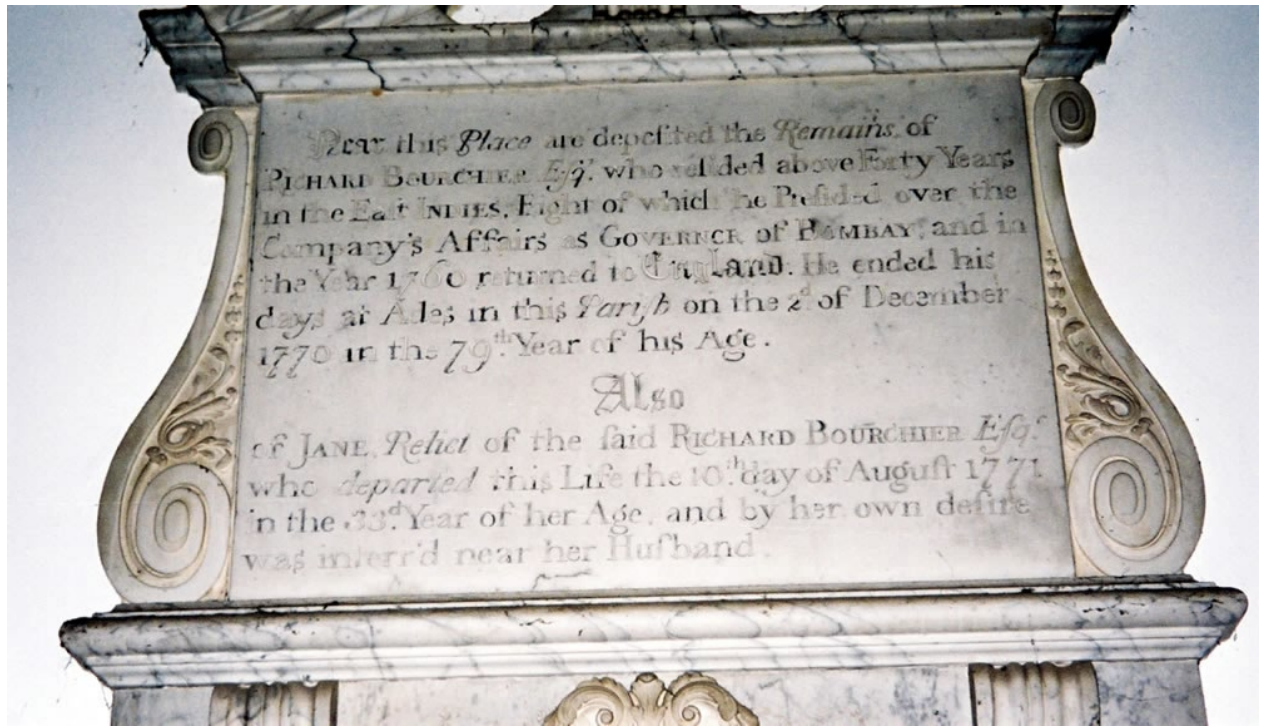 Near this Place are deposited the Remains of
RICHARD BOURCHIER Esqr. who resided above Forty Years
in the East INDIES, Eight of which he Presided over the
Company's Affairs as GOVERNOR of BOMBAY; and in
the Year 1760 returned to England. He ended his
days at Ades in this Parish on the 2d of December
1770 in the 79th. Year of his Age.
Also
of JANE, Relict of the said RICHARD BOURCHIER Esqr.
who departed this Life the 10th. day of August 1771
in the 33d. Year of her Age, and by her own desire
was interr'd near her Husband.